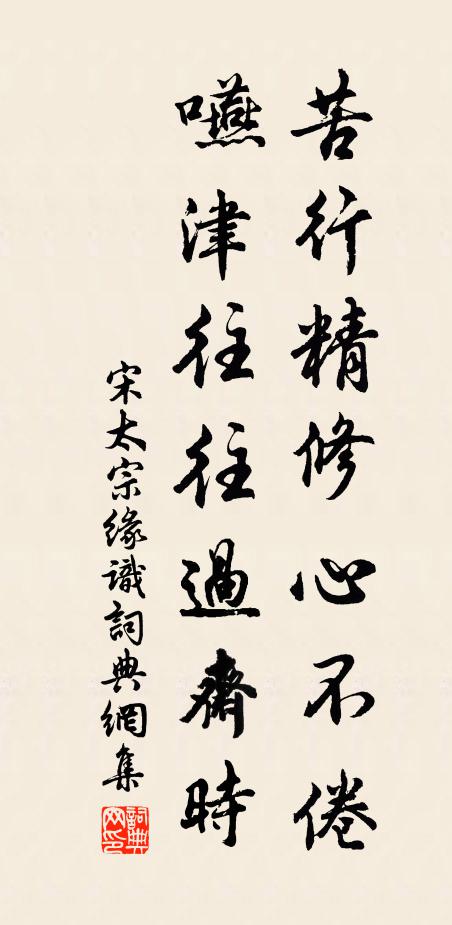 苦行精修心不倦
嚥津往往過齋時
宋太宗緣識詞典網集
詞典网印